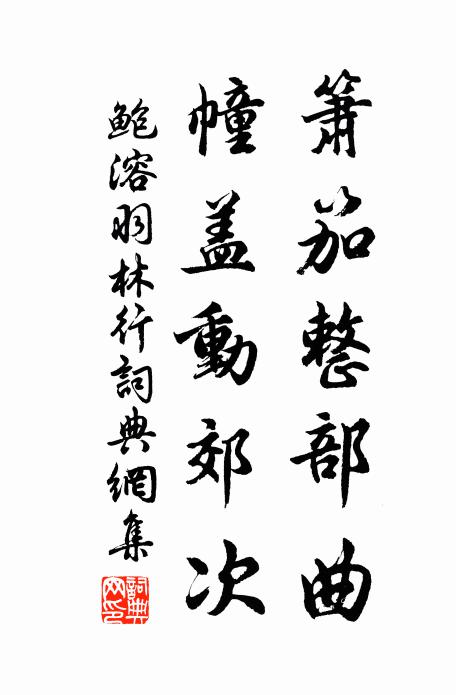 簫笳整部曲
幢盖動郊次
鲍溶羽林行詞典網集
詞典网印